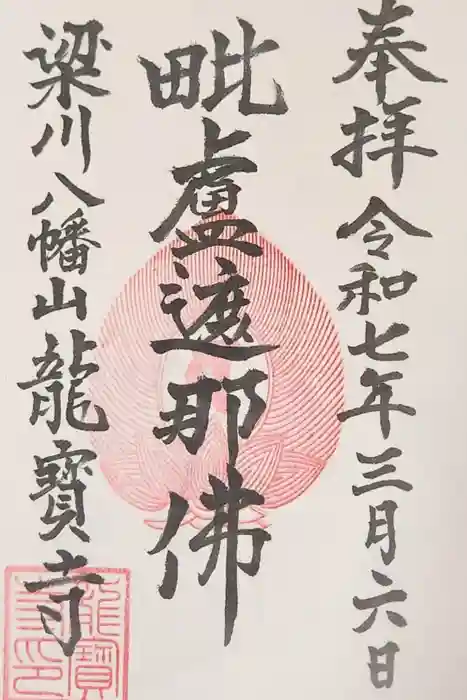 奉拝 令和七年三月六日
毗盧遮那佛
梁川八幡山龍寶寺
龍寶
寺印